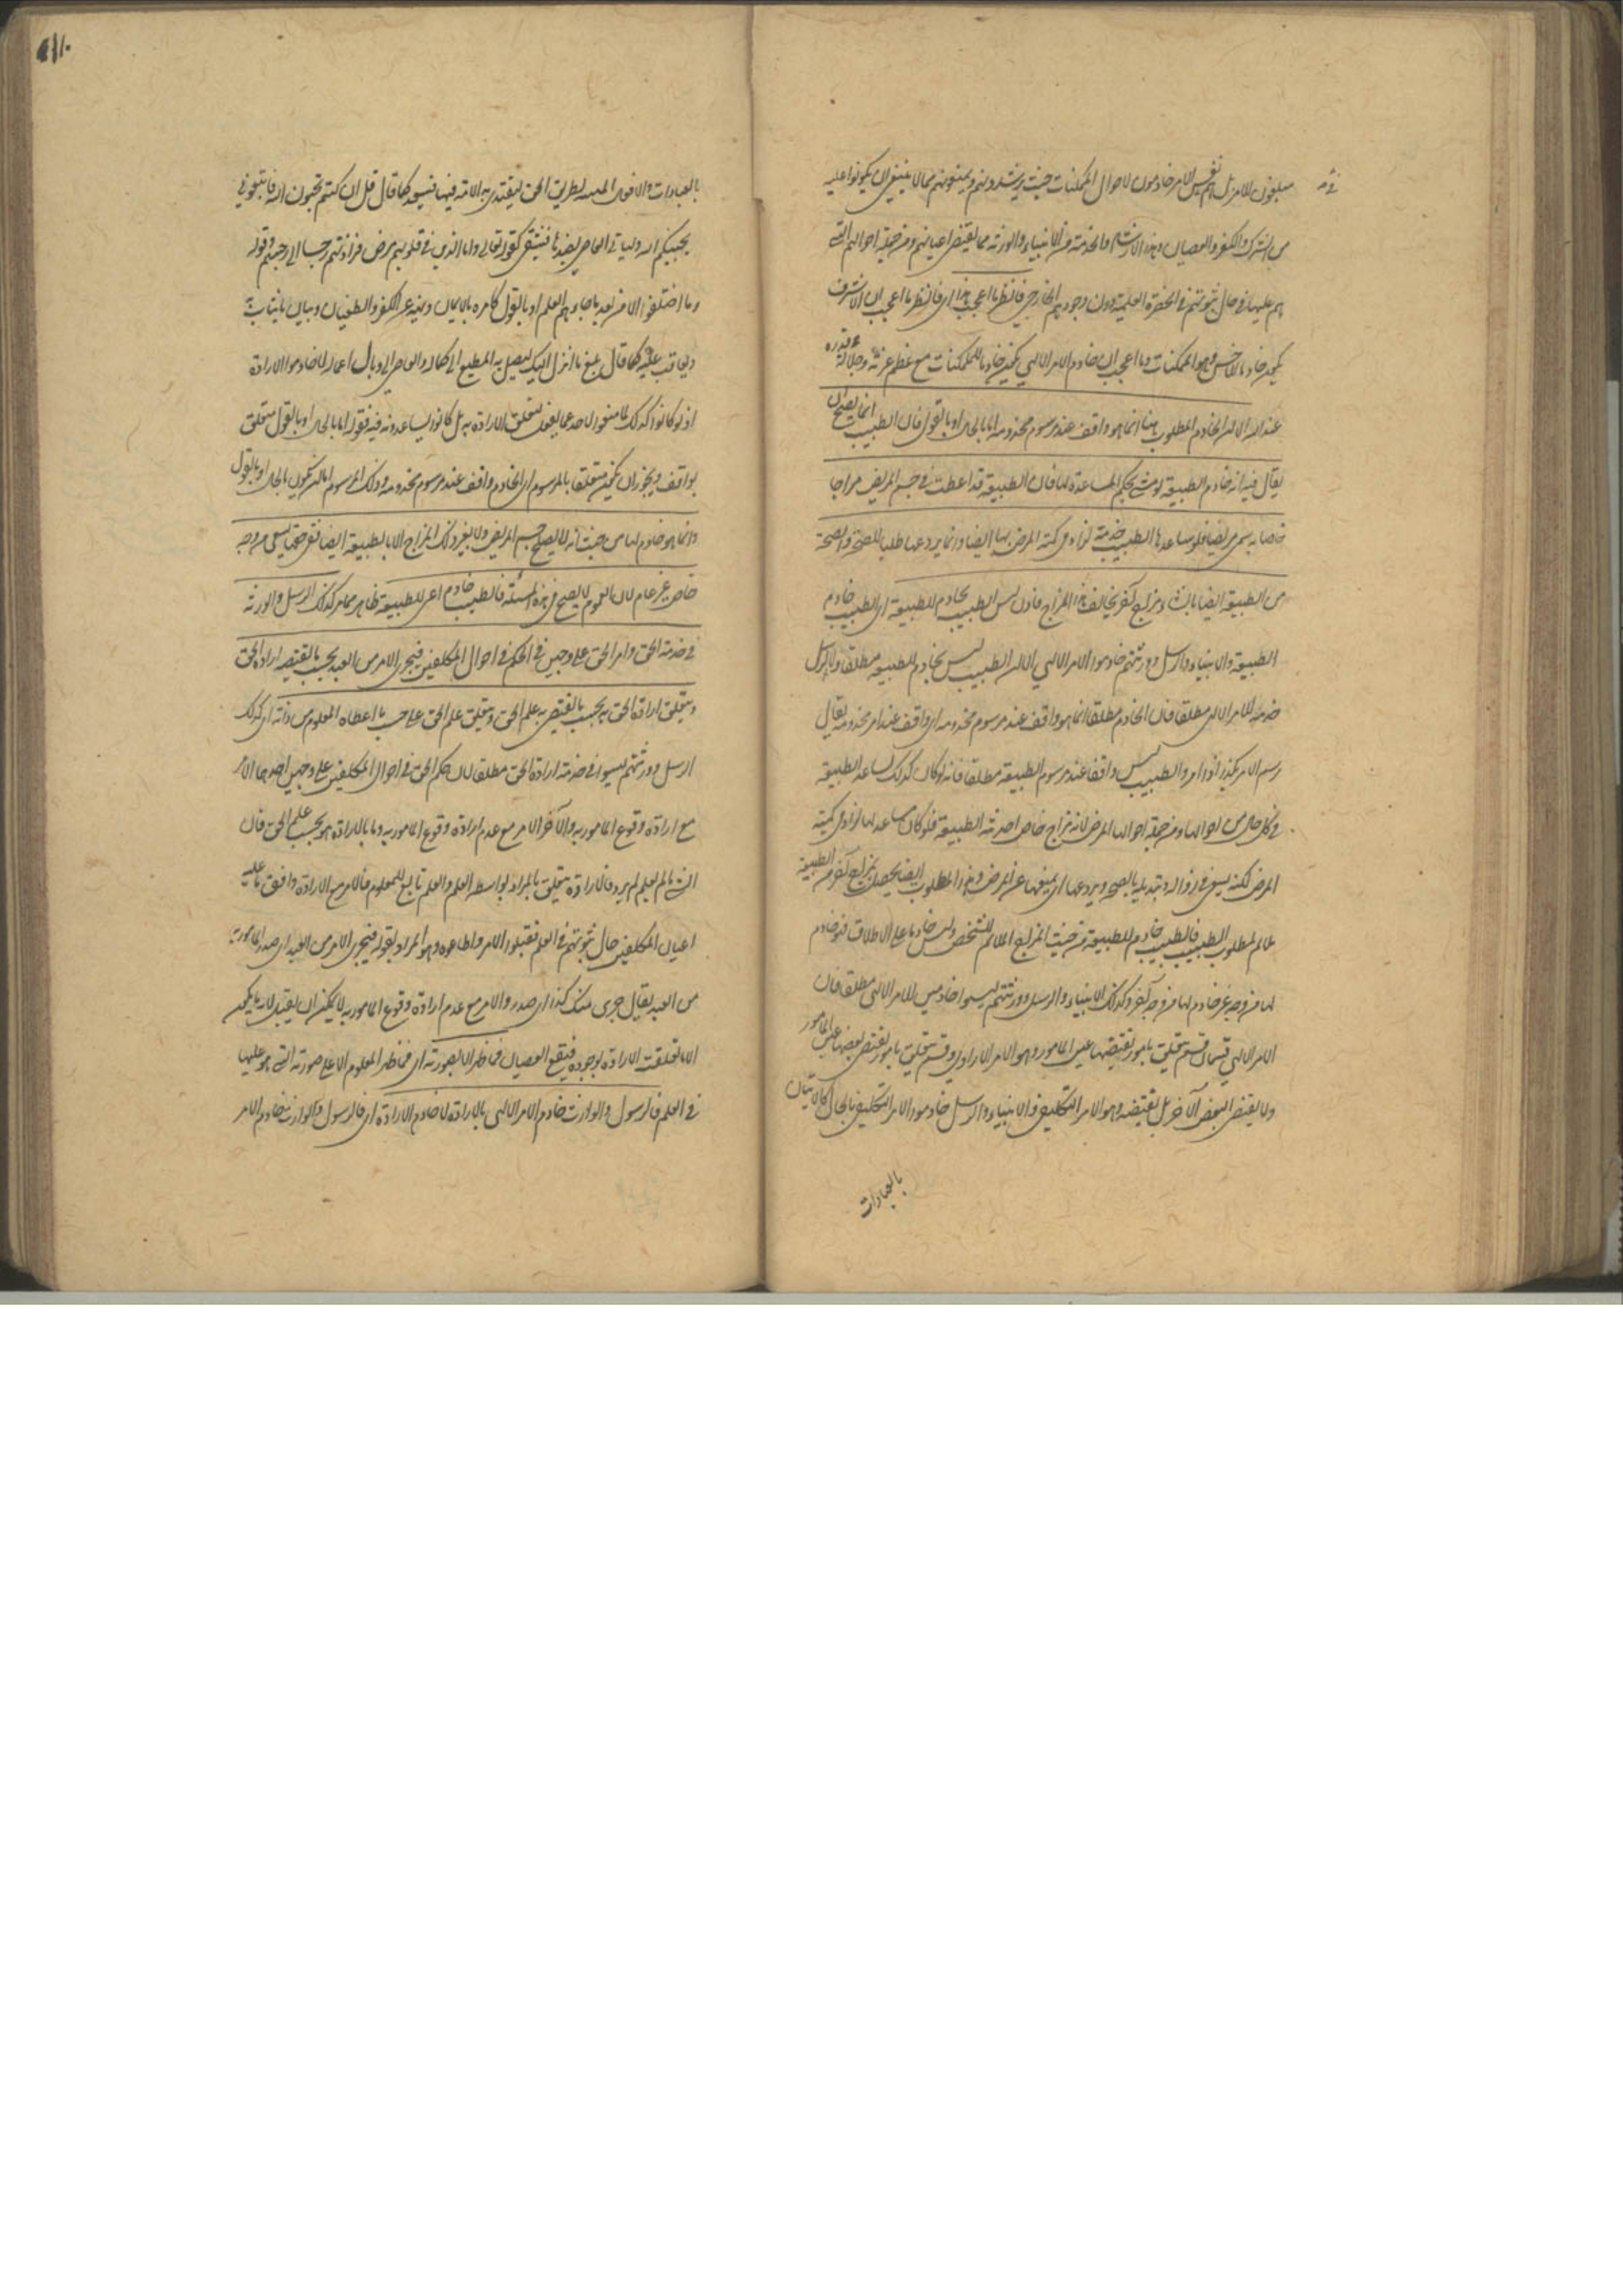 مبلغون للامر بل هم في نفس الامر خادمون لاحوال الممكنات حيث يرشدونهم ويمنعونهم مما لا ينبغي ان يكونوا عليه
من الشرك والكفر والعصيان وهذا الارشاد والخدمة من الانبياء والورثة مما يقتضي اعيانهم ومن جملة احوالهم التي
هم عليها في حال ثبوتهم في الحضرة العلمية دون وجودهم الخارجي فانظر ما اعجب هذا اي فانظر ما اعجب ان الاشرف
يكون خادما للاخس وهو الممكنات وما اعجب ان خادم الامر الالهي يكون خادما للممكنات مع عظم عزته وجلالة قدره
عند الله الا ان الخادم المطلوب هنا انما هو واقف عند مرسوم مخدومه اما بالحال او بالقول فان الطبيب انما يصح ان
يقال فيه انه خادم الطبيعة لو مشى بحكم المساعدة لها فان الطبيعة قد اعطت في جسم المريض مزاجا
خاصا به سمي مريضا فلو ساعدها الطبيب خدمة لزاد في كمية المرض بها ايضا وانما يردعها طلبا للصحة والصحة
من الطبيعة ايضا بانشاء مزاج آخر يخالف هذا المزاج فاذن ليس الطبيب بخادم للطبيعة اي الطبيب خادم
الطبيعة والانبياء والرسل وورثتهم خادموا الامر الالهي الا ان الطبيب ليس بخادم للطبيعة مطلقا ولا الرسل
خدمة للامر الالهي مطلقا فان الخادم مطلقا انما هو واقف عند مرسوم مخدومه اي واقف عند امر مخدومه يقال
رسم الامر بكذا اذا امر والطبيب ليس واقفا عند مرسوم الطبيعة مطلقا فانه لو كان كذلك لساعد الطبيعة
في كل حال من احوالها ومن جملة احوالها المرض لانه مزاج خاص احدثته الطبيعة فلو كان مساعدا لها لزاد في كمية
المرض لكنه يسعى في زواله وتبديله بالصحة ويردعها اي يمنعها عن المرض وهذا المطلوب ايضا يحصل بمزاج آخر من الطبيعة
ملائم لمطلوب الطبيب فالطبيب خادم للطبيعة من حيث المزاج الملائم للشخص وليس خادما على الاطلاق فهو خادم
لها من وجه غير خادم لها من وجه آخر وكذلك الانبياء والرسل وورثتهم ليسوا خادمين للامر الالهي مطلقا فان
الامر الالهي قسمان قسم يتعلق بامور تقتضيها عين المامور وهو الامر الارادي وقسم يتعلق بامور يقتضي بعضها عين المامور
ولا يقتضي البعض الآخر بل نقيضه وهو الامر التكليفي والانبياء والرسل خادموا الامر التكليفي بالحال كالاتيان
بالعبادات
بالعبادات والافعال المبينة لطريق الحق ليقتدي به الامة فيها فيسعد كما قال قل ان كنتم تحبون الله فاتبعوني
يحببكم الله ولياتي العاصي بضدها فيشقى كقوله تعالى واما الذين في قلوبهم مرض فزادتهم رجسا الى رجسهم وقوله
وما اختلفوا الا من بعد ما جاءهم العلم او بالقول كامره بالايمان ونهيه عن الكفر والطغيان وبيان ما يثاب به
ويعاقب عليه كما قال بلغ ما انزل اليك ليصل به المطيع الى كماله والعاصي الى وبال اعماله لا خادموا الارادة
اذ لو كانوا كذلك لما منعوا احدا عما يفعل لتعلق الارادة به بل كانوا يساعدونه فيه فقوله اما بالحال او بالقول متعلق
بواقف ويجوز ان يكون متعلقا بالمرسوم اي الخادم واقف عند مرسوم مخدومه وذلك المرسوم اما ان يكون بالحال او بالقول
وانما هو خادم لها من حيث انه لا يصلح جسم المريض ولا يغير ذلك المزاج الا بالطبيعة ايضا ففي حقها يسعى من وجه
خاص غير عام لان العموم لا يصح في هذه المسئلة فالطبيب خادم لا خادم اعني للطبيعة ظاهر مما مر كذلك الرسل والورثة
في خدمة الحق وامر الحق على وجهين في الحكم في احوال المكلفين فيجري الامر من العبد بحسب ما يقتضيه ارادة الحق
ويتعلق ارادة الحق به بحسب ما يقتضي به علم الحق ويتعلق علم الحق على حسب ما اعطاه المعلوم من ذاته اي كذلك
الرسل وورثتهم ليسوا في خدمة ارادة الحق مطلقا لان حكم الحق في احوال المكلفين على وجهين احدهما الامر
مع ارادة وقوع المامور به والآخر الامر مع عدم ارادة وقوع المامور به وما بالارادة هو بحسب علم الحق فان
الشئ ما لم يعلم لم يرد فالارادة يتعلق بالمراد بواسطة العلم والعلم تابع للمعلوم فالامر مع الارادة وافق ما عليه
اعيان المكلفين حال ثبوتهم في العلم فقبلوا الامر واطاعوه وهو المراد بقوله فيجري الامر من العبد اي صدر المامور به
من العبد يقال جرى منك كذا اي صدر والامر مع عدم ارادة وقوع المامور به لا يمكن ان يقبل لانه ما يمكن
الا ما تعلقت الارادة بوجوده فيقع العصيان فما ظهر الا بصورته اي فما ظهر المعلوم الا على صورته التي هو عليها
في العلم فالرسول والوارث خادم الامر الالهي بالارادة لا خادم الارادة اي فالرسول والوارث خادم الامر